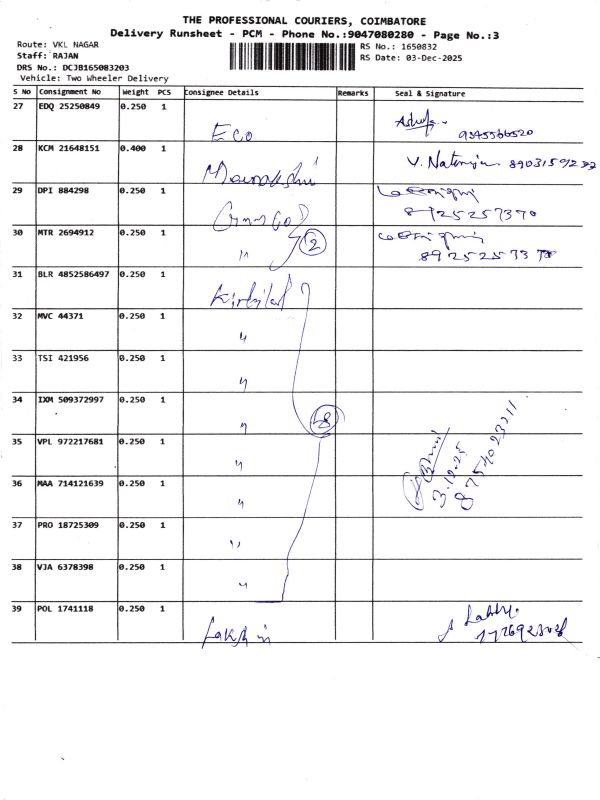 THE PROFESSIONAL COURIERS, COIMBATORE
Delivery Runsheet - PCM - Phone No.:9047080280 - Page No.:3
Route: VKL NAGAR
Staff: RAJAN
DRS No.: DCJB165083203
Vehicle: Two Wheeler Delivery
RS No.: 1650832
RS Date: 03-Dec-2025
S No Consignment No Weight PCS Consignee Details Remarks Seal & Signature
27 EDQ 25250849 0.250 1
Eco
9345566520
28 KCM 21648151 0.400 1
V. Natarajan
29 DPI 884298 0.250 1
8925257370
30 MTR 2694912 0.250 1
" 2
8925257370
31 BLR 4852586497 0.250 1
32 MVC 44371 0.250 1
"
33 TSI 421956 0.250 1
"
34 IXM 509372997 0.250 1
" 8
35 VPL 972217681 0.250 1
"
3.12.25
8754023211
36 MAA 714121639 0.250 1
"
37 PRO 18725309 0.250 1
"
38 VJA 6378398 0.250 1
"
39 POL 1741118 0.250 1